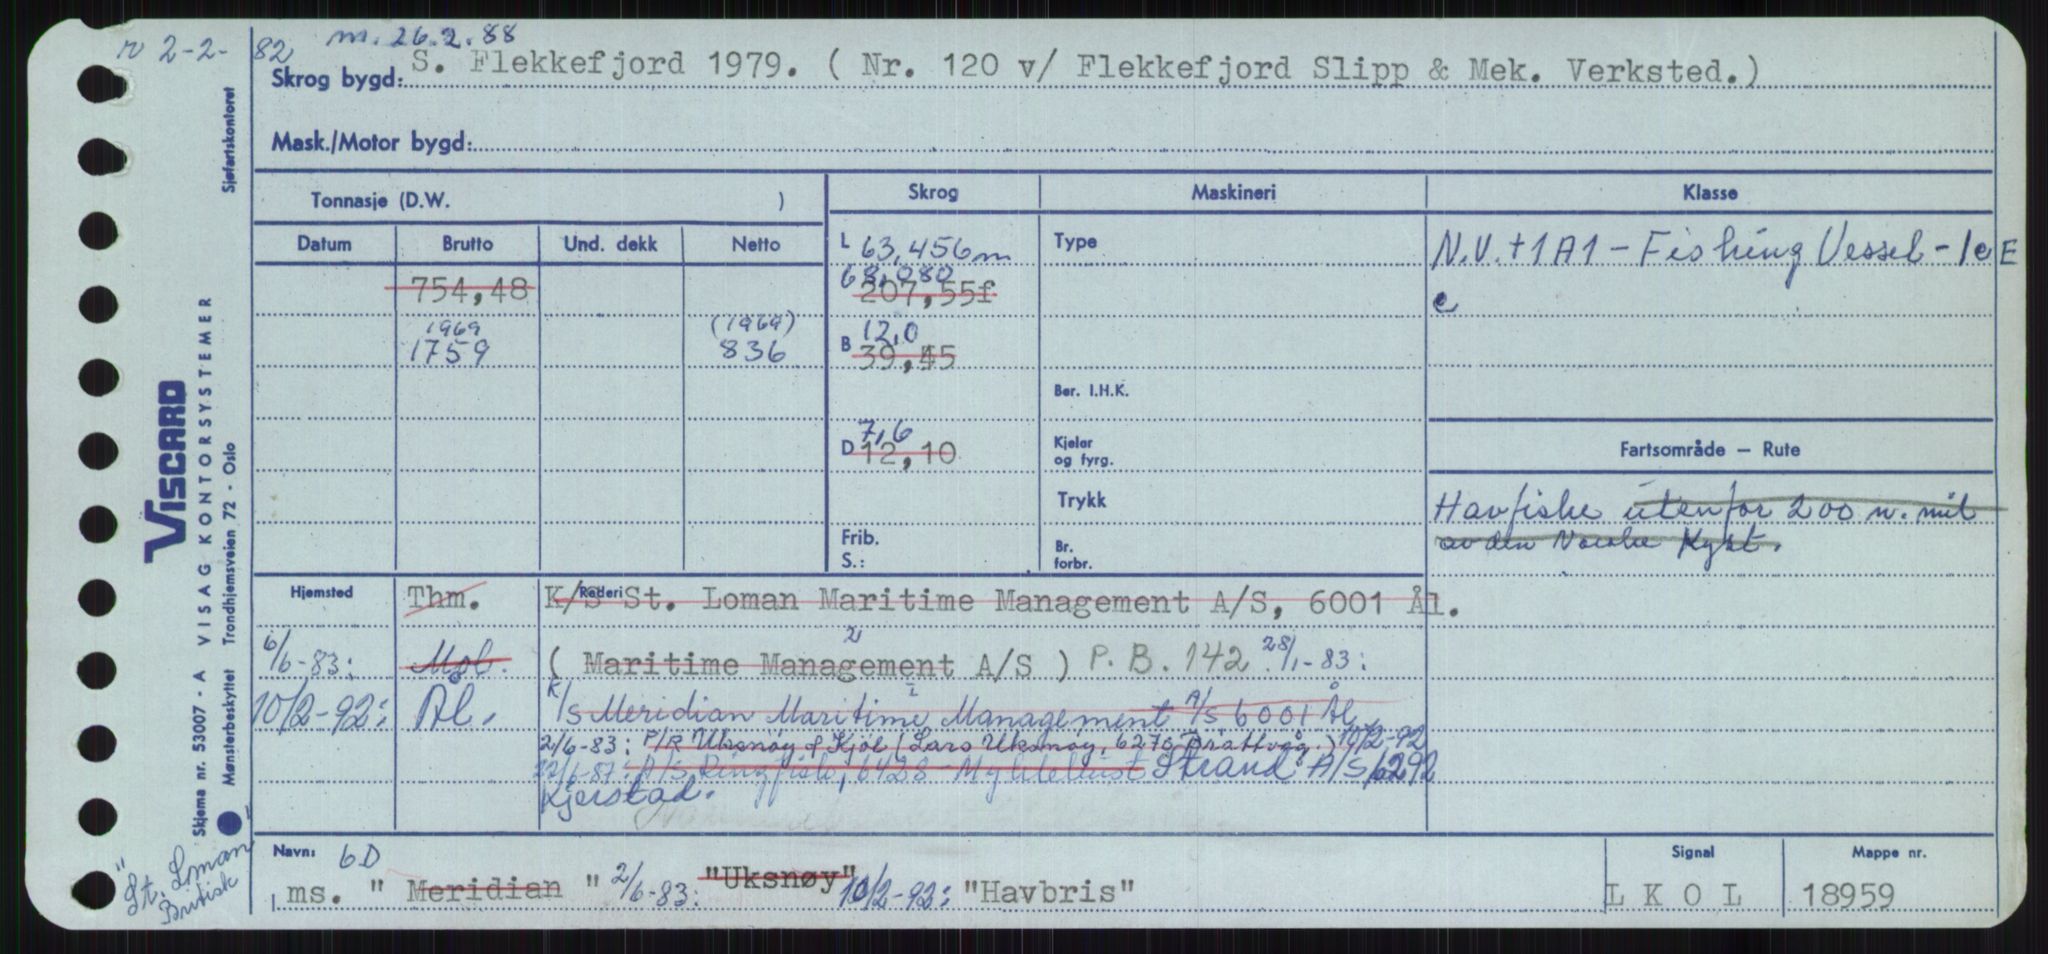 r 2-2-82 m. 26.2.88
Skrog bygd: S. Flekkefjord 1979. ( Nr. 120 v/ Flekkefjord Slipp & Mek. Verksted.)
Mask./Motor bygd:
Tonnasje (D.W. )
Skrog Maskineri Klasse
Datum Brutto Und. dekk Netto
L 63,456m
68,080
207,55f
Type
N.V. +1A1 - Fishing Vessel - Ice E
e
754,48
1969 (1969)
1759 836
B 12,0
39,45
Ber. I.H.K.
D 7,6
12,10
Kjeler
og fyrg.
Trykk
Frib.
S.:
Br.
forbr.
Fartsområde — Rute
Havfiske utenfor 200 n. mil
av den Norske Kyst.
Hjemsted Thm. Rederi K/S St. Loman Maritime Management A/S, 6001 Ål.
6/6-83: Mol. ( Maritime Management A/S ) P.B. 142 28/1-83:
10/2-92: Ål. K/S Meridian Maritime Management A/S 6001 Ål
2/6-83: P/R Uksnøy & Kjøl (Lars Uksnøy, 6270 Brattvåg.) 10/2-92
22/6-87: A/S Ringfisk, 6428 Myklebust Strand A/S, 6292
Kjerstad.
Navn: 6D
ms. " Meridian " 2/6-83: "Uksnøy" 10/2-92: "Havbris"
Signal
L K O L
Mappe nr.
18959
Sjøfartskontoret
VISCARD
VISAG KONTORSYSTEMER
Trondhjemsveien 72 - Oslo
Skjema nr. 53007 - A
Mønsterbeskyttet
"St. Lman"
Britisk